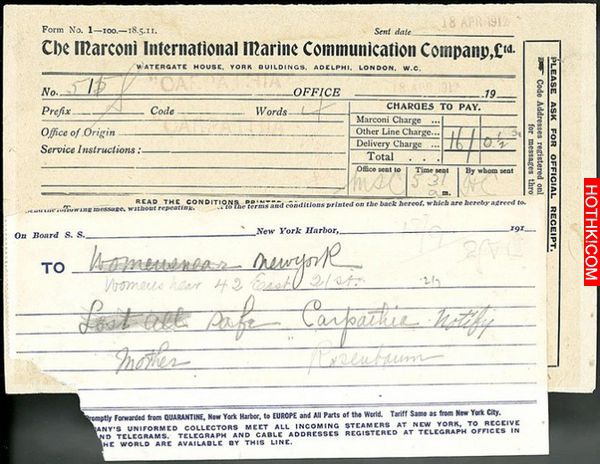 Form No. 1—100.—18.5.11.
Sent date
18 APR 1912
The Marconi International Marine Communication Company, Ltd.
WATERGATE HOUSE, YORK BUILDINGS, ADELPHI, LONDON, W.C.
No. OFFICE 19
Prefix Code Words
Office of Origin
Service Instructions:
CHARGES TO PAY.
Marconi Charge ...
Other Line Charge ...
Delivery Charge ...
Total
Office sent to Time sent By whom sent
PLEASE ASK FOR OFFICIAL RECEIPT.
Code Addresses registered
for messages thro
READ THE CONDITIONS PRINTED
following message, without repeating, to the terms and conditions printed on the back hereof, which are hereby agreed to.
On Board S. S. New York Harbor, 191
TO Womenswear Newyork
Womens wear 42 East 21 st.
Lost all safe Carpathia notify
Mother Rosenbaum
Promptly Forwarded from QUARANTINE, New York Harbor, to EUROPE and All Parts of the World. Tariff Same as from New York City.
ANY'S UNIFORMED COLLECTORS MEET ALL INCOMING STEAMERS AT NEW YORK, TO RECEIVE
ND TELEGRAMS. TELEGRAPH AND CABLE ADDRESSES REGISTERED AT TELEGRAPH OFFICES IN
THE WORLD ARE AVAILABLE BY THIS LINE.
HOTHKI.COM